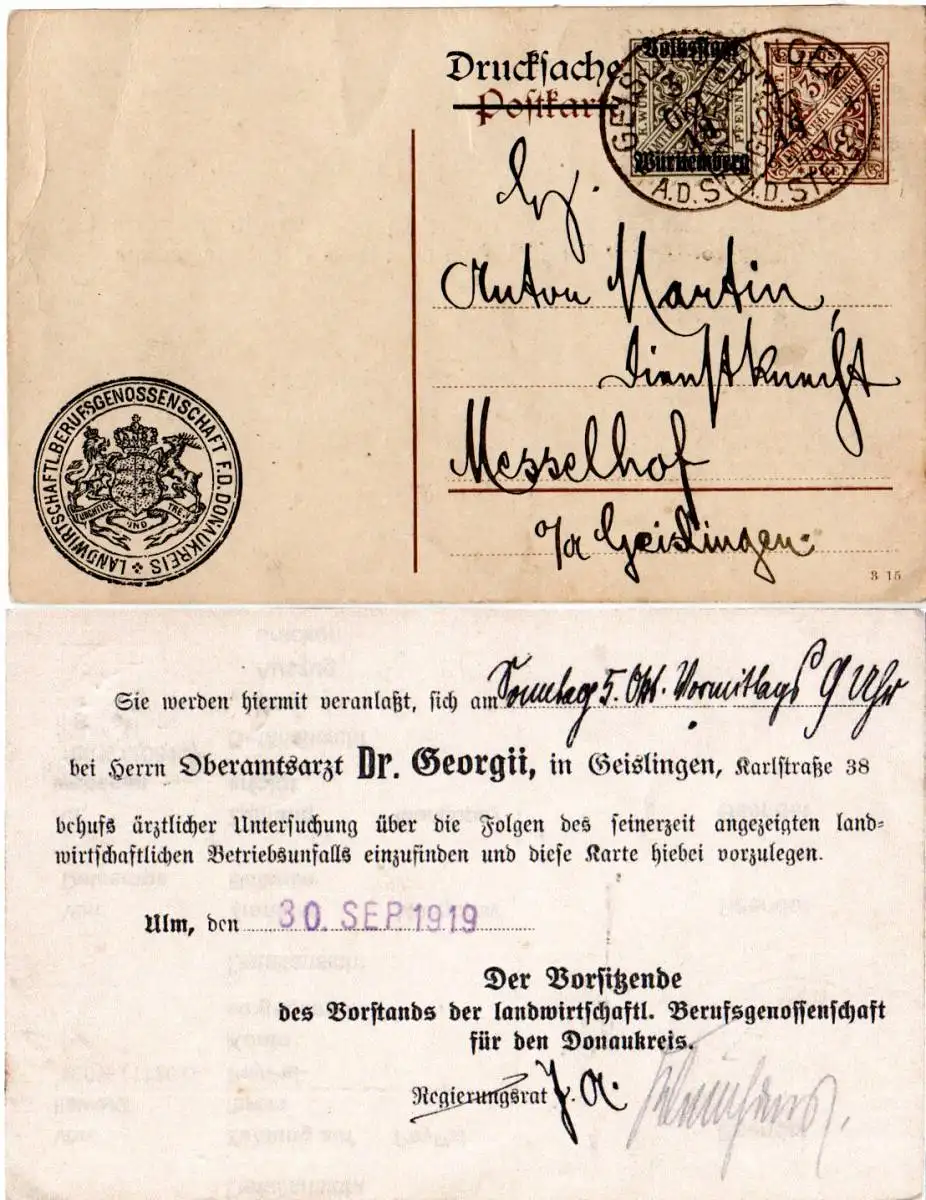 Drucksache
Postkarte
Volksstaat
Württemberg
GEISLINGEN
A.D. STEIG
GEISLINGEN
A.D. STEIG
Anton Martin,
Dienstknecht
Messelhof
o/a Geislingen.
LANDWIRTSCHAFTL. BERUFSGENOSSENSCHAFT F. D. DONAUKREIS
FURCHTLOS UND TREW
3 15
Sie werden hiermit veranlaßt, sich am Sonntag 5. Okt. Vormittags 9 Uhr
bei Herrn Oberamtsarzt Dr. Georgii, in Geislingen, Karlstraße 38
behufs ärztlicher Untersuchung über die Folgen des seinerzeit angezeigten land-
wirtschaftlichen Betriebsunfalls einzufinden und diese Karte hiebei vorzulegen.
Ulm, den 30. SEP. 1919
Der Vorsitzende
des Vorstands der landwirtschaftl. Berufsgenossenschaft
für den Donaukreis.
Regierungsrat J. A.